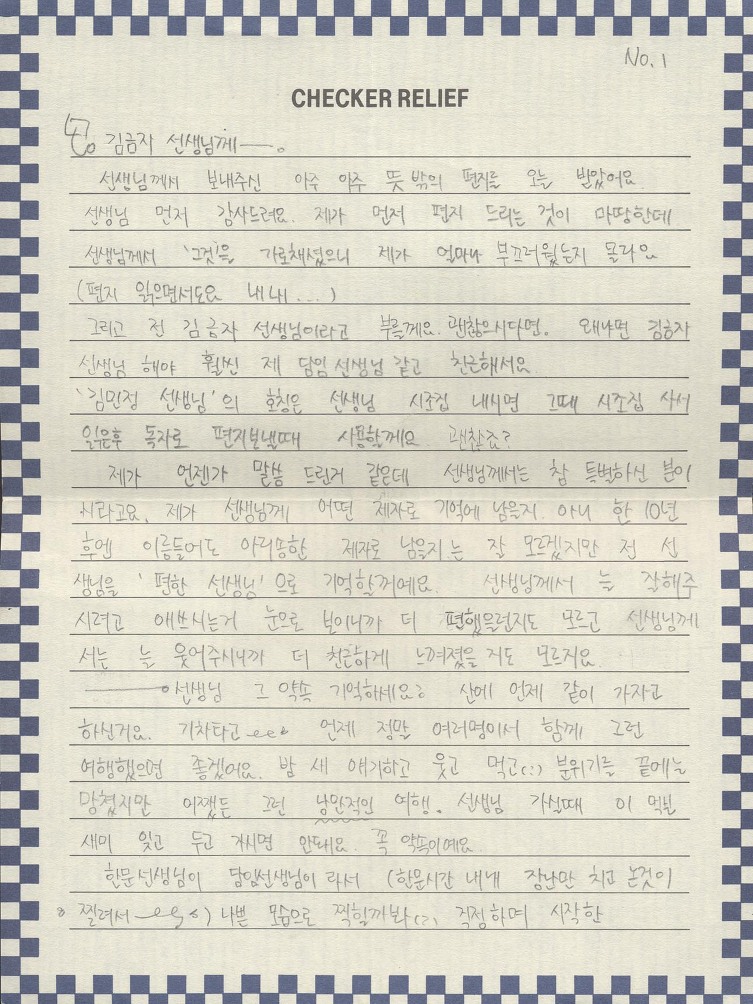 No. 1
CHECKER RELIEF
To 김금자 선생님께—.
선생님께서 보내주신 아주 아주 뜻 밖의 편지를 오늘 받았어요.
선생님 먼저 감사드려요. 제가 먼저 편지 드리는 것이 마땅한데
선생님께서 '그것'을 가로채셨으니 제가 얼마나 부끄러웠는지 몰라요
(편지 읽으면서도요 내내...)
그리고 전 김금자 선생님이라고 부를께요. 괜찮으시다면. 왜냐면 김금자
선생님 해야 훨씬 제 담임선생님 같고 친근해서요.
'김민정 선생님'의 호칭은 선생님 시조집 내시면 그때 시조집 사서
읽은후 독자로 편지보낼때 사용할께요. 괜찮죠?
제가 언젠가 말씀 드린거 같은데 선생님께서는 참 특별하신 분이
시라고요. 제가 선생님께 어떤 제자로 기억에 남을지. 아니 한 10년
후엔 이름들어도 아리송한 제자로 남을지는 잘 모르겠지만 전 선
생님을 '편한 선생님'으로 기억할꺼예요. 선생님께서 늘 잘해주
시려고 애쓰시는거 눈으로 보이니까 더 편했을런지도 모르고 선생님께
서는 늘 웃어주시니까 더 친근하게 느껴졌을지도 모르지요.
선생님 그 약속 기억하세요? 산에 언제 같이 가자고
하신거요. 기차타고 언제 정말 여러명이서 함께 그런
여행했으면 좋겠어요. 밤 새 얘기하고 웃고 먹고(:) 분위기를 끝에는
망쳤지만 어쨌든 그런 낭만적인 여행. 선생님 가실때 이 먹보
새미 잊고 두고 가시면 안돼요. 꼭 약속이예요.
한문선생님이 담임선생님이 라서 (한문시간 내내 장난만 치고 논것이
찔려서) 나쁜 모습으로 찍힐까봐(?) 걱정하며 시작한